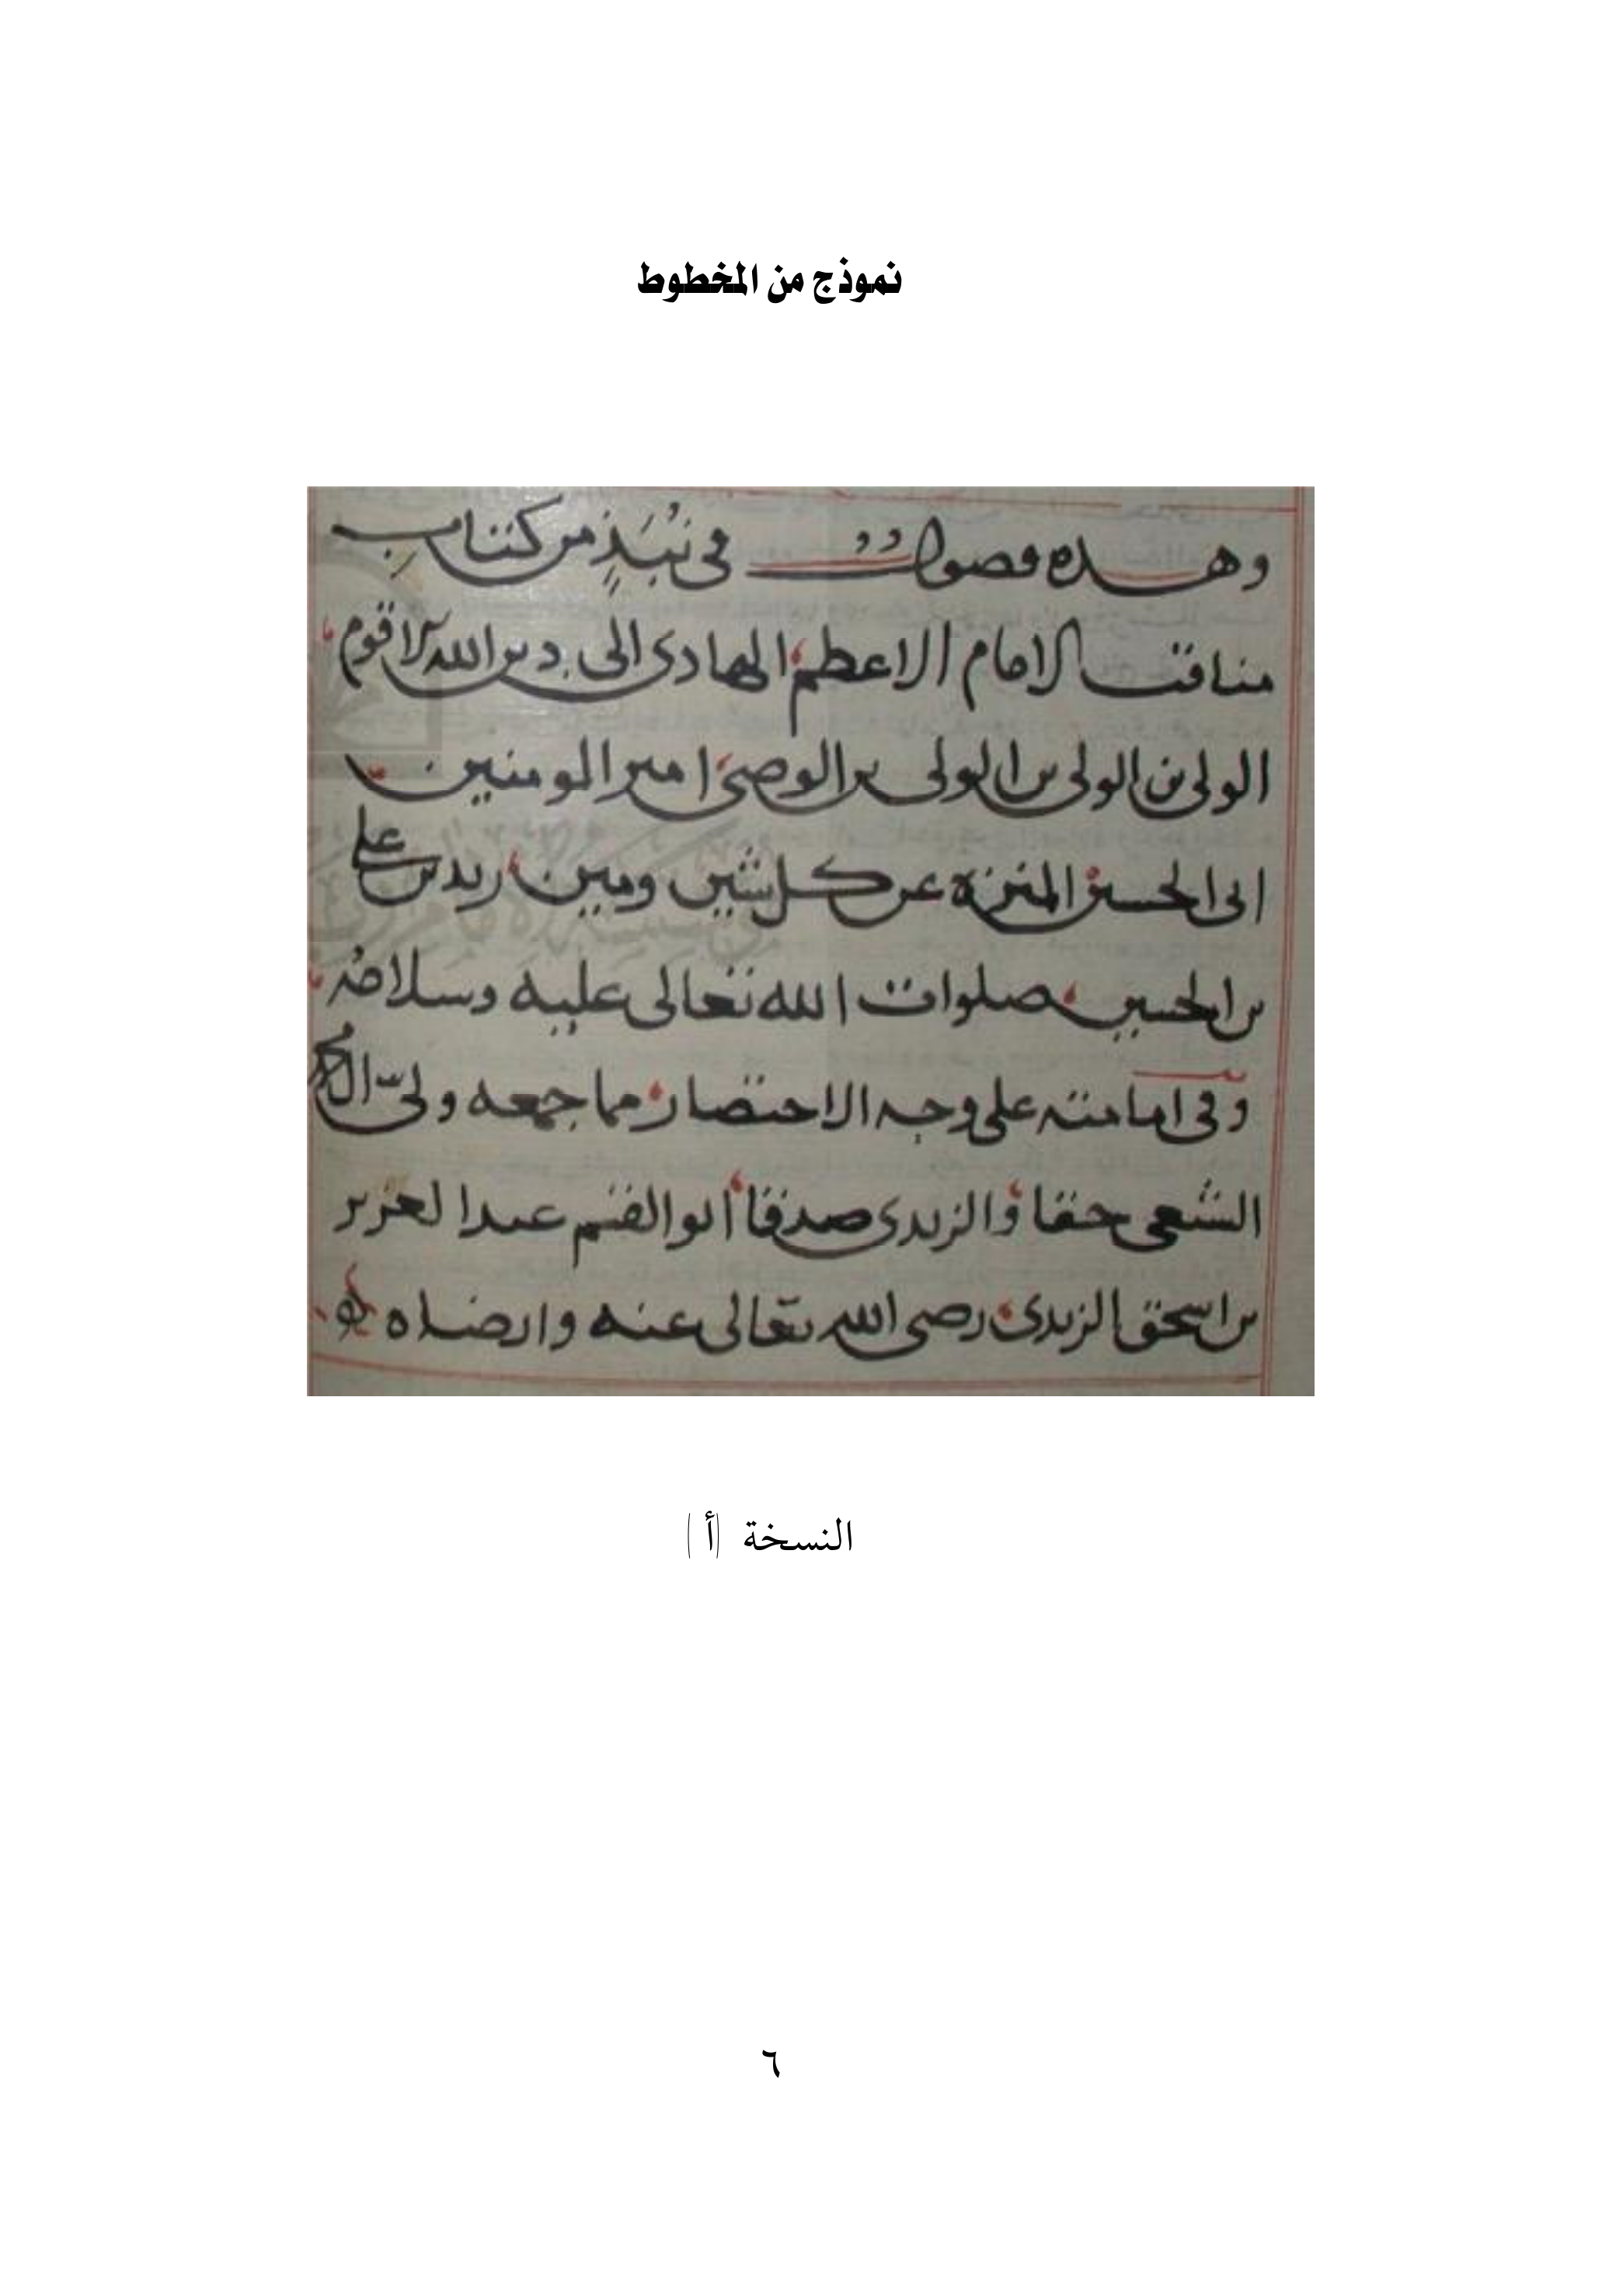 نموذج من المخطوط
وهذه فصول في نُبَذٍ من كتاب
مناقب الامام الاعظم الهادى الى دين الله الاقوم
الولى بن الولى بن الولى بن الوصى امير المومنين
ابى الحسين المنزه عن كل شين ومين زيد بن على
بن الحسين صلوات الله تعالى عليه وسلامه
وفى امامته على وجه الاختصار مما جمعه ولىّ آل محمد
الشيعى حقا والزيدى صدقا ابو القسم عبد العزيز
بن اسحق الزيدى رضى الله تعالى عنه وارضاه
النسخة (أ)
٦